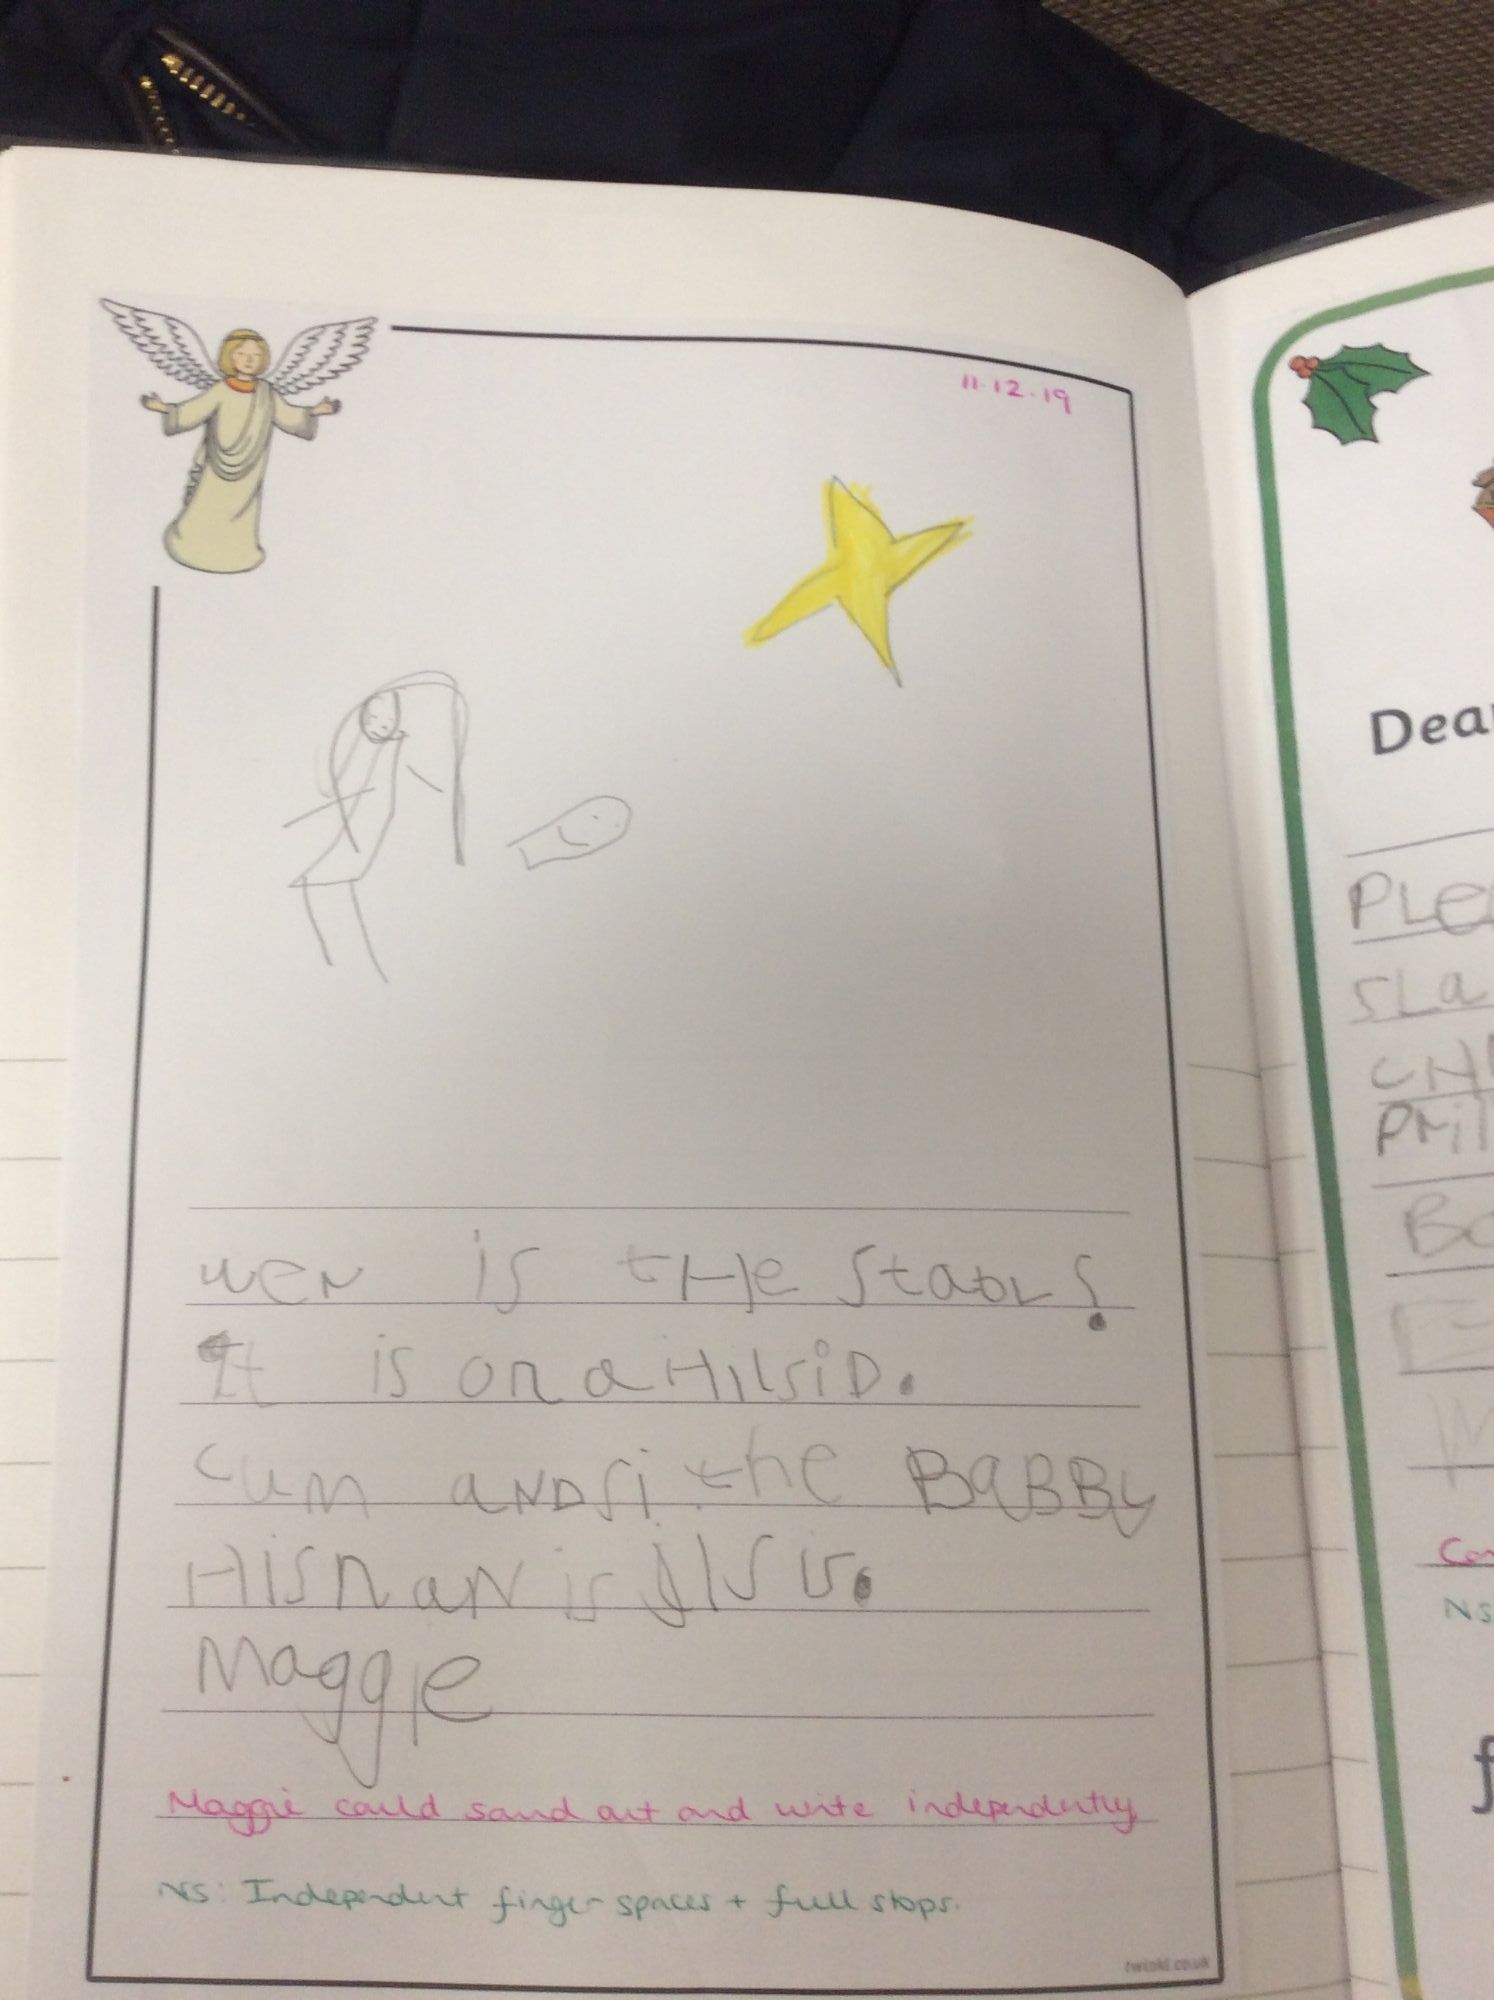 11.12.19
wen is tHe stabl?
It is on a HilsiD.
cum aND si the BaBBy
His naN is JIsis.
Maggie
Maggie could sound out and write independently
NS: Independent finger spaces + full stops.
twinkl.co.uk
Dear
PLea
sLa
CHI
Pril
Bo
Co
NS
f